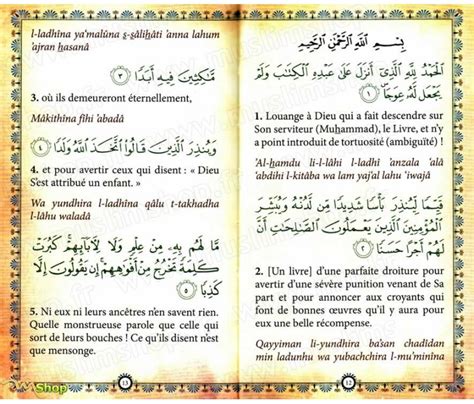 بِسْمِ اللَّهِ الرَّحْمَٰنِ الرَّحِيمِ
الْحَمْدُ لِلَّهِ الَّذِي أَنزَلَ عَلَىٰ عَبْدِهِ الْكِتَٰبَ وَلَمْ
يَجْعَل لَّهُ عِوَجًا ١
1. Louange à Dieu qui a fait descendre sur
Son serviteur (Muhammad), le Livre, et n'y
a point introduit de tortuosité (ambiguïté) !
Al-hamdu li-l-lâhi l-ladhî 'anzala 'alâ
'abdihi l-kitâba wa lam yaj'al lahu 'iwajâ
قَيِّمًا لِّيُنذِرَ بَأْسًا شَدِيدًا مِّن لَّدُنْهُ وَيُبَشِّرَ
الْمُؤْمِنِينَ الَّذِينَ يَعْمَلُونَ الصَّٰلِحَٰتِ أَنَّ
لَهُمْ أَجْرًا حَسَنًا ٢
2. [Un livre] d'une parfaite droiture pour
avertir d'une sévère punition venant de Sa
part et pour annoncer aux croyants qui
font de bonnes œuvres qu'il y aura pour
eux une belle récompense.
Qayyiman li-yundhira ba'san chadîdan
min ladunhu wa yubachchira l-mu'minîna
12
l-ladhîna ya'malûna s-sâlihâti 'anna lahum
'ajran hasanâ
مَّٰكِثِينَ فِيهِ أَبَدًا ٣
3. où ils demeureront éternellement,
Mâkithîna fîhi 'abadâ
وَيُنذِرَ الَّذِينَ قَالُوا اتَّخَذَ اللَّهُ وَلَدًا ٤
4. et pour avertir ceux qui disent : « Dieu
S'est attribué un enfant. »
Wa yundhira l-ladhîna qâlu t-takhadha
l-lâhu waladâ
مَّا لَهُم بِهِ مِنْ عِلْمٍ وَلَا لِآبَائِهِمْ كَبُرَتْ
كَلِمَةً تَخْرُجُ مِنْ أَفْوَٰهِهِمْ إِن يَقُولُونَ إِلَّا
كَذِبًا ٥
5. Ni eux ni leurs ancêtres n'en savent rien.
Quelle monstrueuse parole que celle qui
sort de leurs bouches ! Ce qu'ils disent n'est
que mensonge.
13
Shop